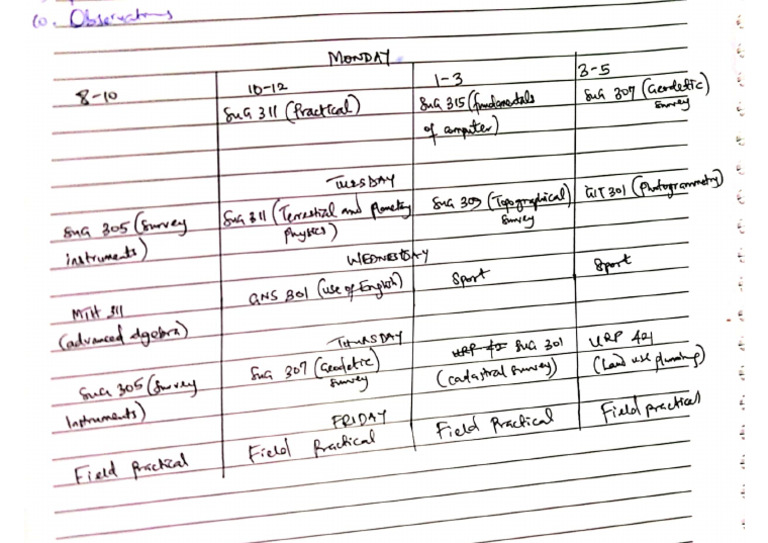 (i). Observations
MONDAY
8-10 10-12 1-3 3-5
SUG 311 (Practical) SUG 315 (fundamentals SUG 307 (Geodetic)
of computer) Survey
TUESDAY
SUG 305 (Survey SUG 311 (Terrestrial and planetary SUG 303 (Topographical) GIT 301 (Photogrammetry)
instruments) Physics) Survey
WEDNESDAY
MTH 311 GNS 301 (use of English) Sport Sport
(advanced algebra)
THURSDAY
SUG 305 (Survey SUG 307 (Geodetic) SUG 301 URP 421
Instruments) Survey (Cadastral Survey) (Land use planning)
FRIDAY
Field Practical Field Practical Field Practical Field practical